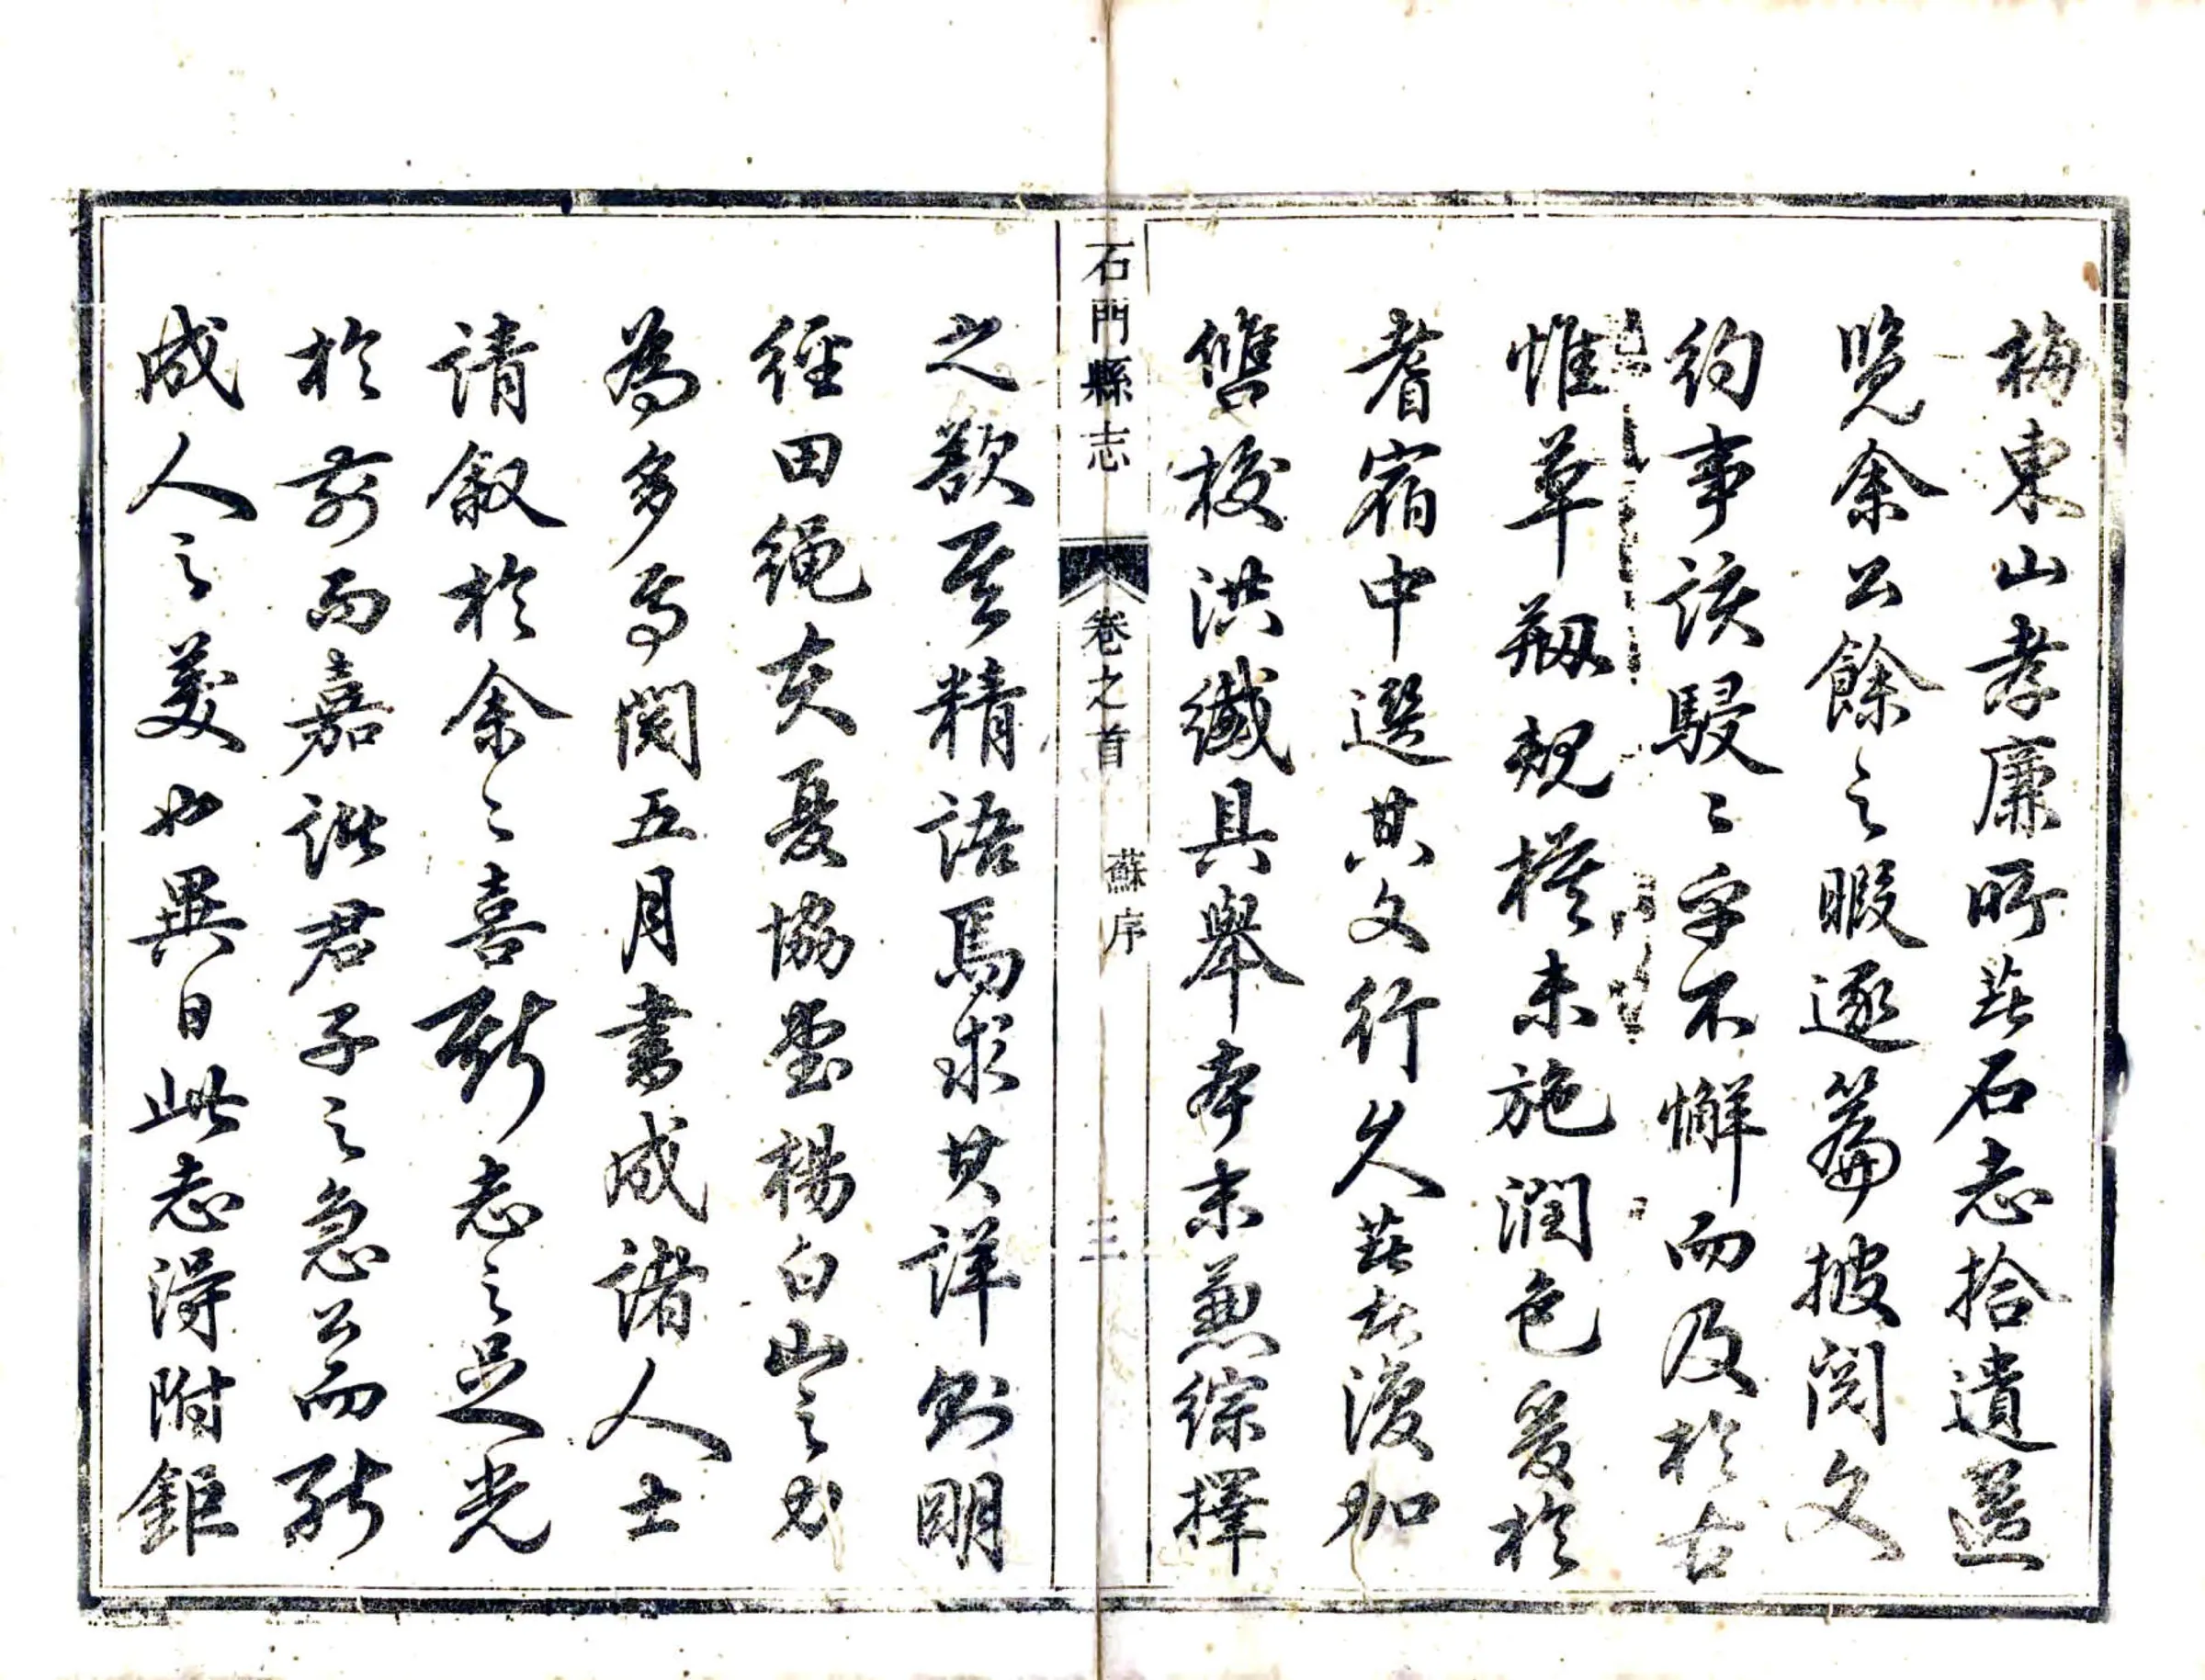 梅東山孝廉所著石志拾遺送
覽余公餘之暇逐篇披閱文
約事該駸〻乎不懈而及於古
惟草剏規模未施潤色爰於
耆宿中選其文行久著者復加
讐校洪纖具舉本末兼綜擇
之欲其精語焉求其詳則明
經田繩夫夏協堂楊白山之力
為多焉閱五月書成諸人士
請叙於余〻喜斯志之足光
於前而嘉諸君子之急公而能
成人之美也異日此志得附鉅
石門縣志
卷之首
蘇序
三